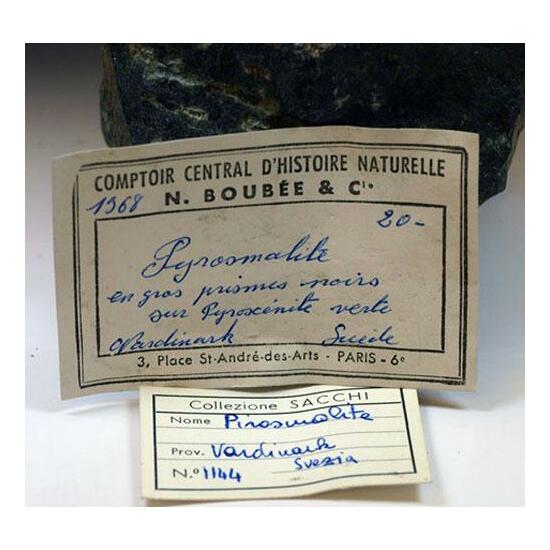 COMPTOIR CENTRAL D'HISTOIRE NATURELLE
1968 N. BOUBÉE & Cie
20-
Pyrosmalite
en gros prismes noirs
sur Pyroxénite verte
Vardinark Suède
3, Place St-André-des-Arts - PARIS - 6e
Collezione SACCHI
Nome Pirosmalite
Prov. Vardinark
Svezia
N.º 1144